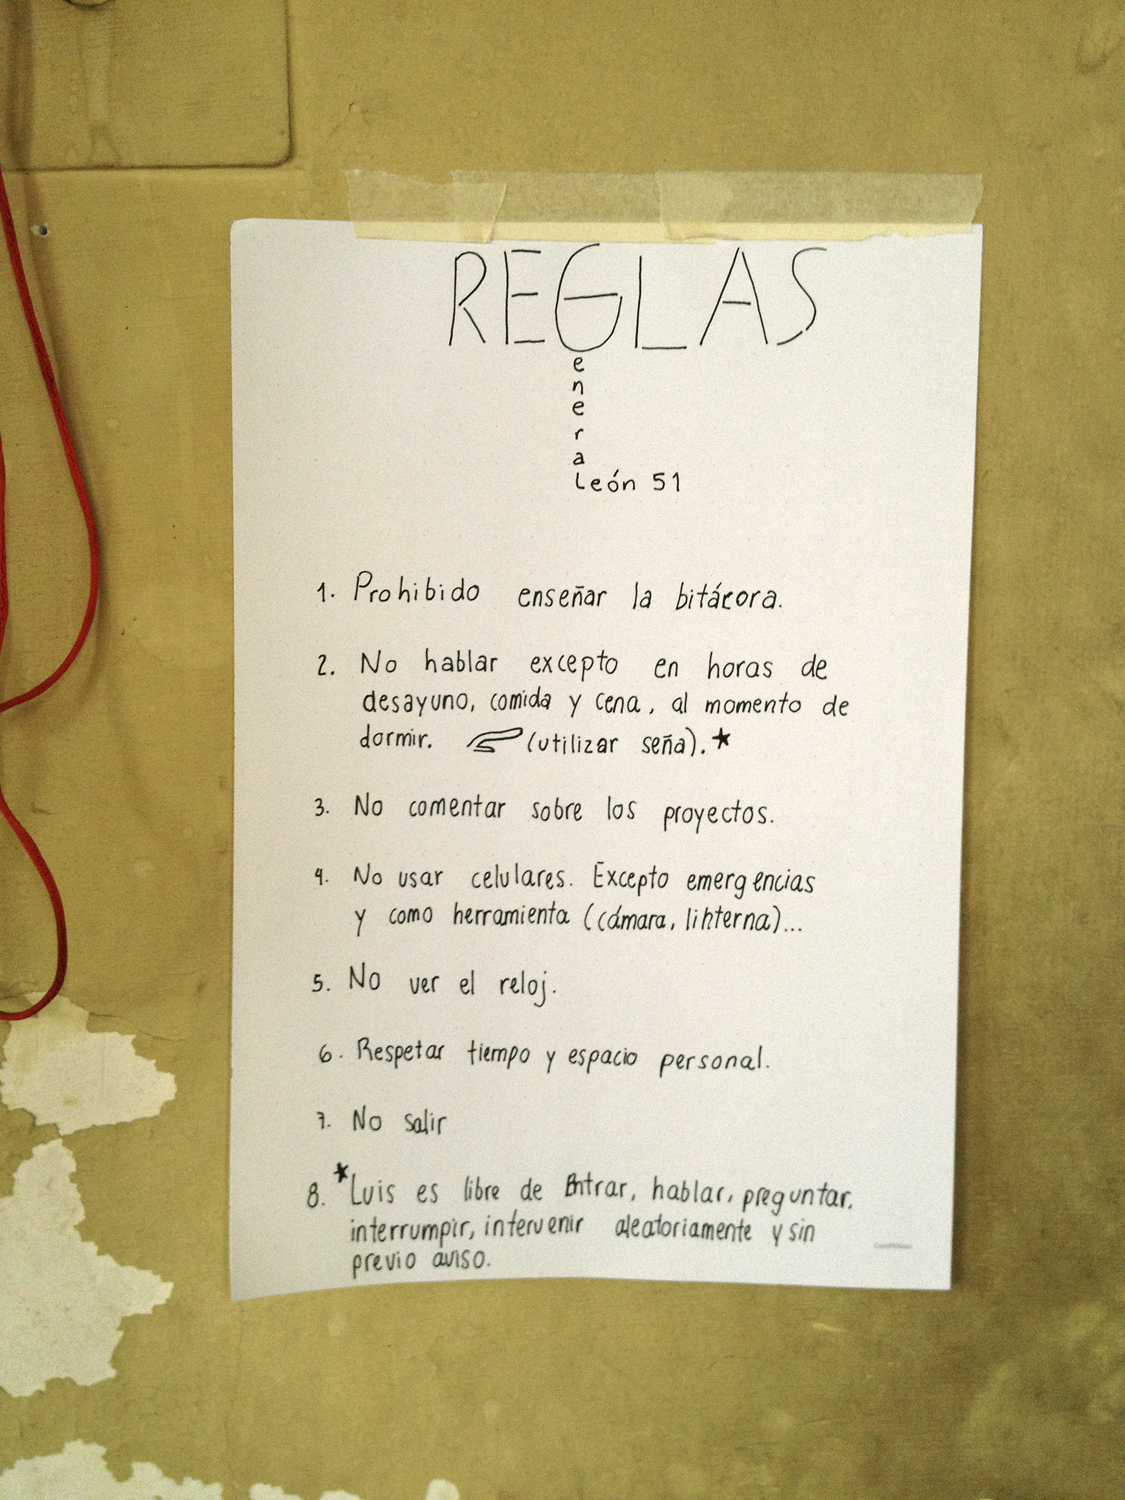 REGLAS
eneral
León 51
1. Prohibido enseñar la bitácora.
2. No hablar excepto en horas de
desayuno, comida y cena, al momento de
dormir. (utilizar seña).★
3. No comentar sobre los proyectos.
4. No usar celulares. Excepto emergencias
y como herramienta (cámara, linterna)...
5. No ver el reloj.
6. Respetar tiempo y espacio personal.
7. No salir
8. ★Luis es libre de Entrar, hablar, preguntar,
interrumpir, intervenir aleatoriamente y sin
previo aviso.